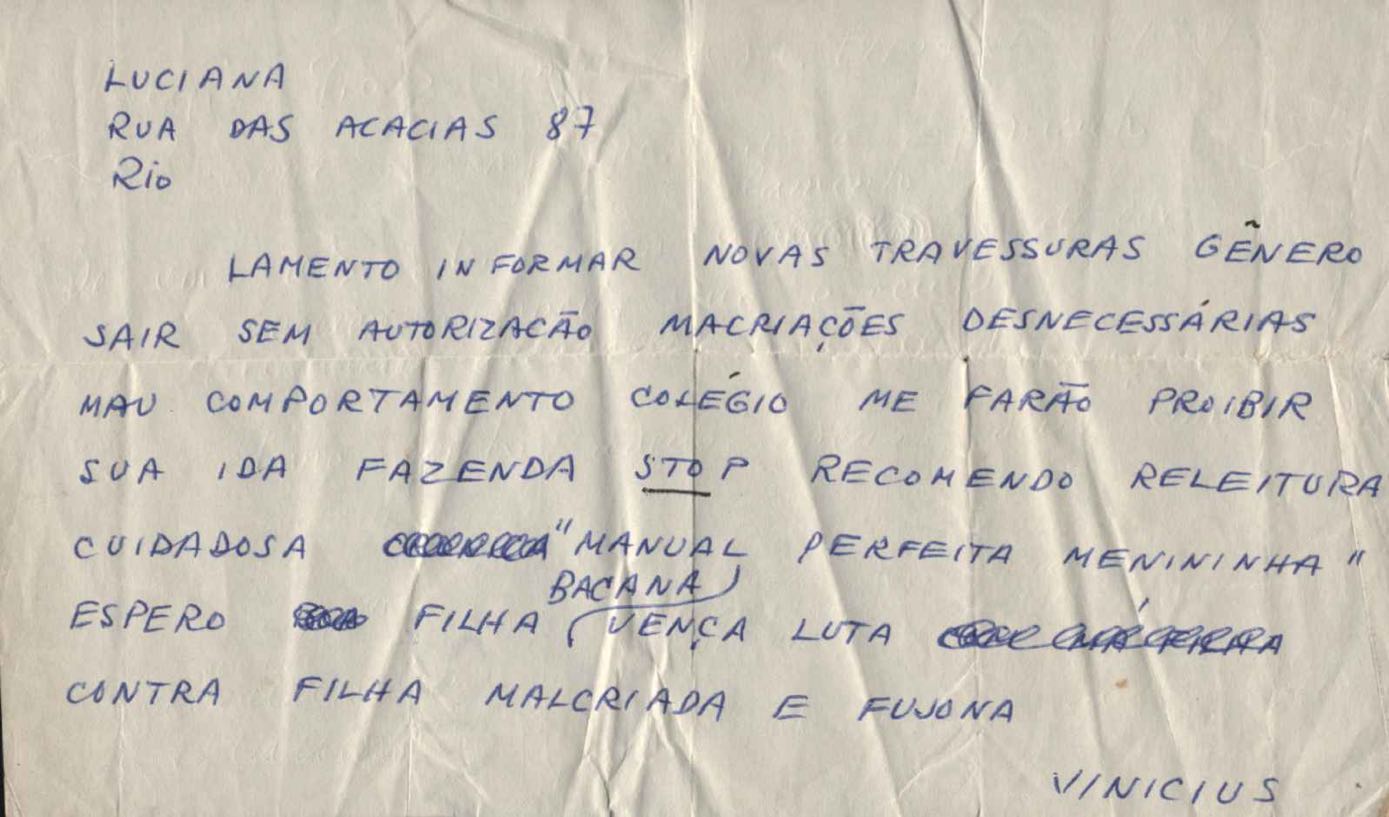 LUCIANA
RUA DAS ACACIAS 87
Rio
LAMENTO INFORMAR NOVAS TRAVESSURAS GÊNERO
SAIR SEM AUTORIZACÃO MACRIAÇÕES DESNECESSÁRIAS
MAU COMPORTAMENTO COLÉGIO ME FARÃO PROIBIR
SUA IDA FAZENDA STOP RECOMENDO RELEITURA
CUIDADOSA "MANUAL PERFEITA MENININHA"
BACANA
ESPERO FILHA VENÇA LUTA
CONTRA FILHA MALCRIADA E FUJONA
VINICIUS